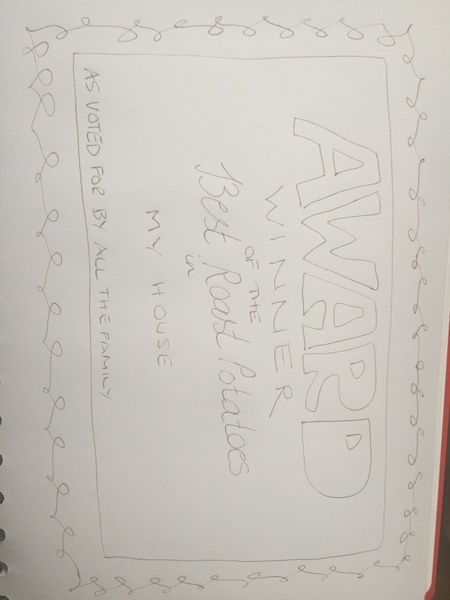 AWARD
WINNER
OF THE
Best Roast Potatoes
in
MY HOUSE
AS VOTED FOR BY ALL THE FAMILY